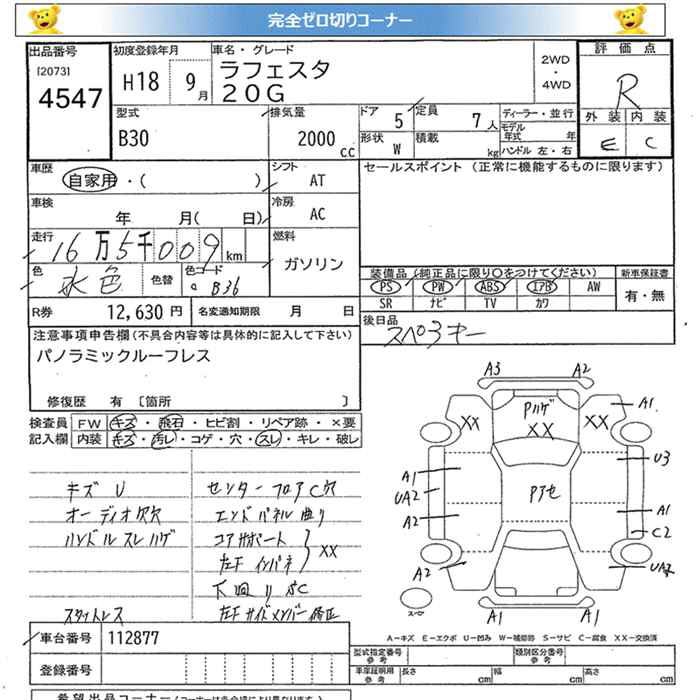 完全ゼロ切りコーナー
出品番号
[2073]
4547
初度登録年月
H18 9月
車名・グレード
ラフェスタ
20G
2WD
・
4WD
評価点
R
外装 内装
E C
型式
B30
排気量
2000 cc
ドア 5
定員 7人
形状 W
積載 kg
ディーラー・並行
モデル年式 年
ハンドル 左・右
車歴
自家用・( )
シフト
AT
セールスポイント (正常に機能するものに限ります)
車検
年 月( 日)
冷房
AC
走行
16万5千009km
燃料
ガソリン
色
水色
色替
色コード
B36
装備品(純正品に限り○をつけてください)
PS PW ABS エアB AW
SR ナビ TV カワ
新車保証書
有・無
R券 12,630円
名変通知期限 月 日
後日品
スペアキー
注意事項申告欄(不具合内容等は具体的に記入して下さい)
パノラミックルーフレス
修復歴 有 [箇所 ]
検査員 FW キズ・飛石・ヒビ割・リペア跡・×要
記入欄 内装 キズ・汚レ・コゲ・穴・スレ・キレ・破レ
キズU
オーディオ欠穴
ハンドルスレハゲ
スタットレス
センターフロアC穴
エンドパネル曲り
コアサポート
左F インパネ
XX
下回りSC
左Fサイドメンバー修正
A3 A2
XX XX A1
Pハゲ
XX
U3
A1
UA2
A2
Pアセ
A1
C2
A2
UA2
スペア
A1 A1
A-キズ E-エクボ U-凹み W-補修跡 S-サビ C-腐食 XX-交換済
車台番号 112877
登録番号
型式指定番号
参考
類別区分番号
参考
車庫証明用
参考
長さ cm
幅 cm
高さ cm
希望出品コーナー